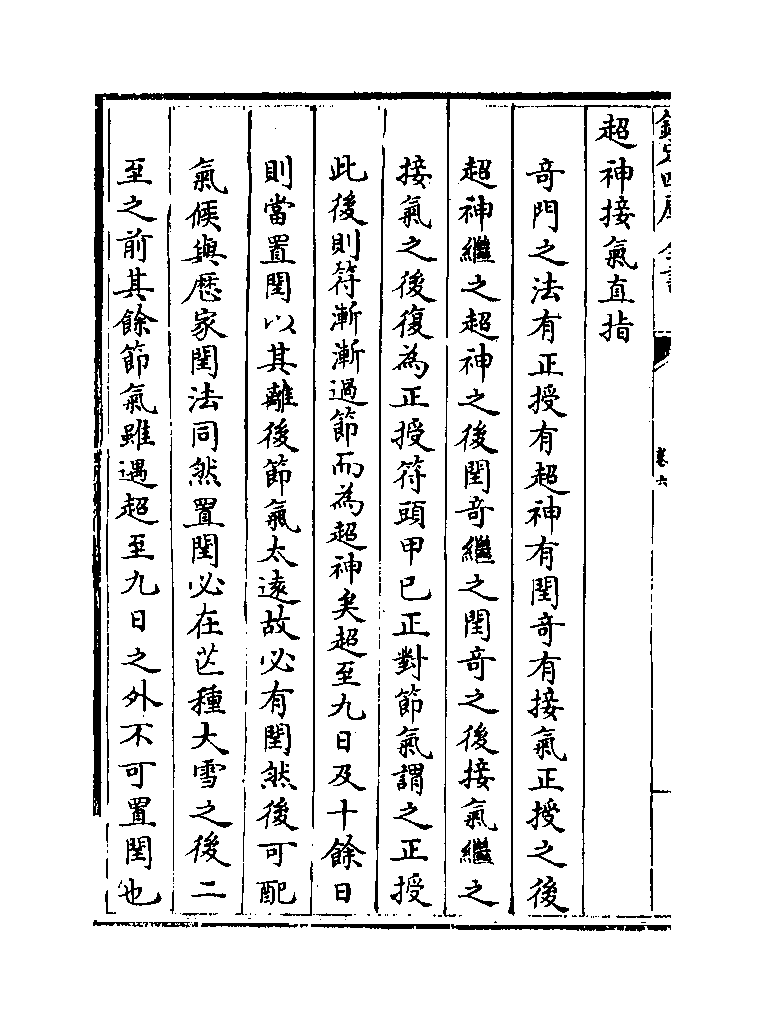 欽定四庫全書
卷六
超神接氣直指
奇門之法有正授有超神有閏奇有接氣正授之後
超神繼之超神之後閏奇繼之閏奇之後接氣繼之
接氣之後復為正授符頭甲己正對節氣謂之正授
此後則符漸漸過節而為超神矣超至九日及十餘日
則當置閏以其離後節氣太遠故必有閏然後可配
氣候與厯家閏法同然置閏必在芒種大雪之後二
至之前其餘節氣雖遇超至九日之外不可置閏也